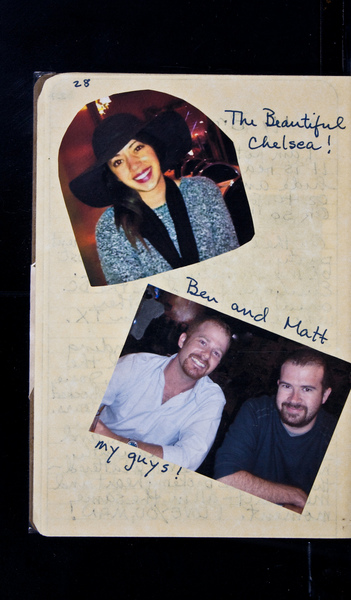 28
The Beautiful
Chelsea!
Ben and Matt
my guys!